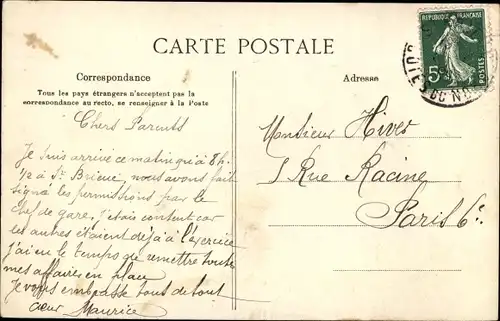 CARTE POSTALE
Correspondance
Tous les pays étrangers n'acceptent pas la
correspondance au recto, se renseigner à la Poste
Adresse
REPUBLIQUE FRANÇAISE
5c
POSTES
CÔTES DU N
Chers Parents
Je suis arrivé ce matin qu'à 8h.
1/2 à St. Brieuc, nous avons fait
signé les permissions par le
chef de gare, j'étais content car
les autres étaient déjà à l'exercice
j'ai eu le temps de remettre toute
mes affaires en place
Je vous embrasse tous de tout
cœur Maurice
Monsieur Hives
5 Rue Racine
Paris 6e